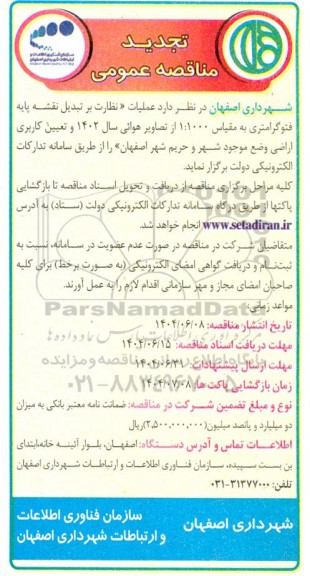 تجدید
مناقصه عمومی
شهرداری اصفهان در نظر دارد عملیات « نظارت بر تبدیل نقشه پایه
فتوگرامتری به مقیاس ۱:۱۰۰۰ از تصاویر هوائی سال ۱۴۰۲ و تعیین کاربری
اراضی وضع موجود شهر و حریم شهر اصفهان» را از طریق سامانه تدارکات
الکترونیکی دولت برگزار نماید.
کلیه مراحل برگزاری مناقصه از دریافت و تحویل اسناد مناقصه تا بازگشایی
پاکتها از طریق درگاه سامانه تدارکات الکترونیکی دولت (ستاد) به آدرس
www.setadiran.ir انجام خواهد شد.
متقاضیان شرکت در مناقصه در صورت عدم عضویت در سامانه، نسبت به
ثبت‌نام و دریافت گواهی امضای الکترونیکی (به صورت برخط) برای کلیه
صاحبان امضای مجاز و مهر سازمانی اقدام لازم را به عمل آورند.
مواعد زمانی:
تاریخ انتشار مناقصه: ۱۴۰۴/۰۶/۰۸
مهلت دریافت اسناد مناقصه: ۱۴۰۴/۰۶/۱۵
مهلت ارسال پیشنهادات: ۱۴۰۴/۰۶/۳۱
زمان بازگشایی پاکت ها: ۱۴۰۴/۰۷/۰۸
نوع و مبلغ تضمین شرکت در مناقصه: ضمانت نامه معتبر بانکی به میزان
دو میلیارد و پانصد میلیون(۲,۵۰۰,۰۰۰,۰۰۰)ریال
اطلاعات تماس و آدرس دستگاه: اصفهان، بلوار آئینه خانه،ابتدای
بن بست سپیده، سازمان فناوری اطلاعات و ارتباطات شهرداری اصفهان
تلفن: ۳۱۳۷۷۰۰۰-۰۳۱
ParsNamadData
شهرداری اصفهان
سازمان فناوری اطلاعات
و ارتباطات شهرداری اصفهان